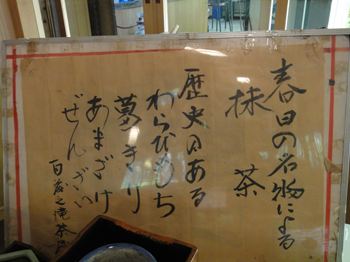 春日の名物による
抹茶
歴史のある
わらびもち
葛きり
あまざけ
ぜんざい
百蔵之滝茶